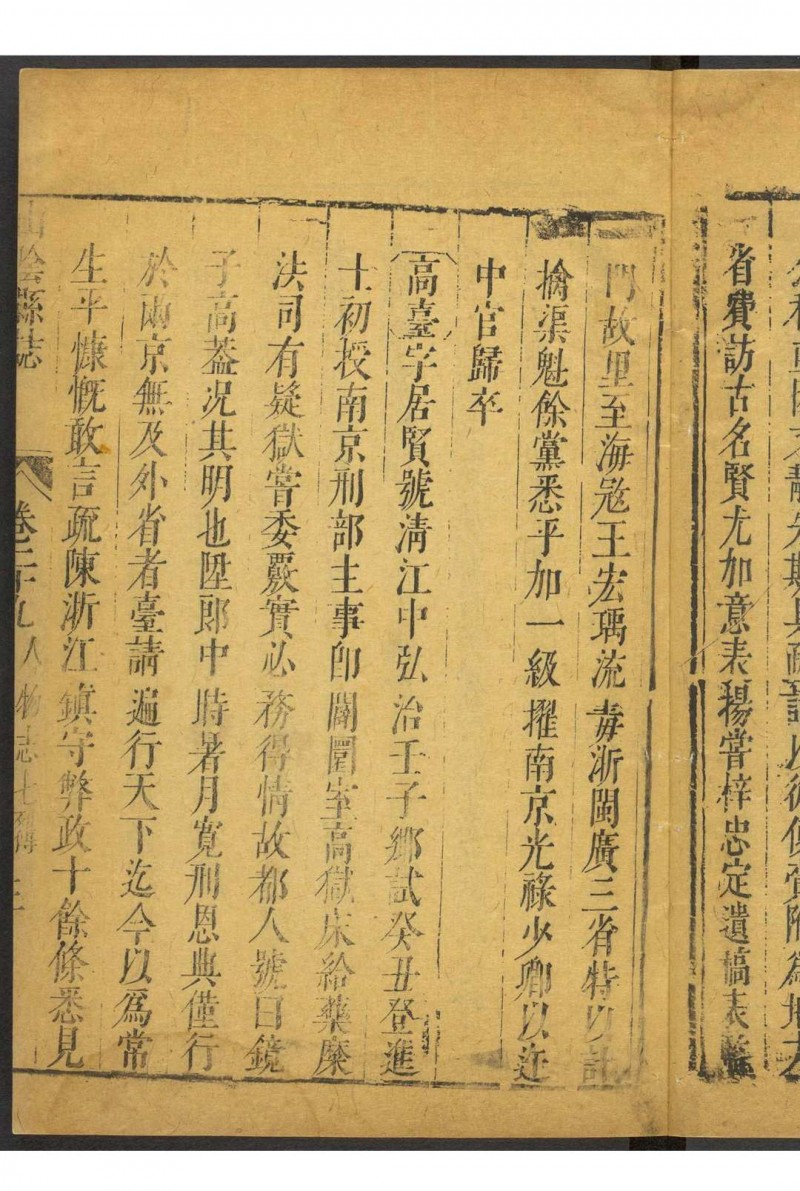 省費訪古名賢尤加意表揚嘗梓忠定遺稿表
門故里至海寇王宏瑀流毒浙閩廣三省特以計
擒渠魁餘黨悉平加一級擢南京光祿少卿以迕
中官歸卒
高臺字居賢號淸江中弘治壬子鄉試癸丑登進
士初授南京刑部主事卽闢圜室高獄床給藥糜
法司有疑獄嘗委覈實必務得情故都人號曰鏡
子高葢况其明也陞郎中時暑月寬刑恩典僅行
於兩京無及外省者臺請遍行天下迄今以爲常
生平慷慨敢言疏陳浙江鎮守弊政十餘條悉見
山陰縣誌 卷二十九 人物志七 三